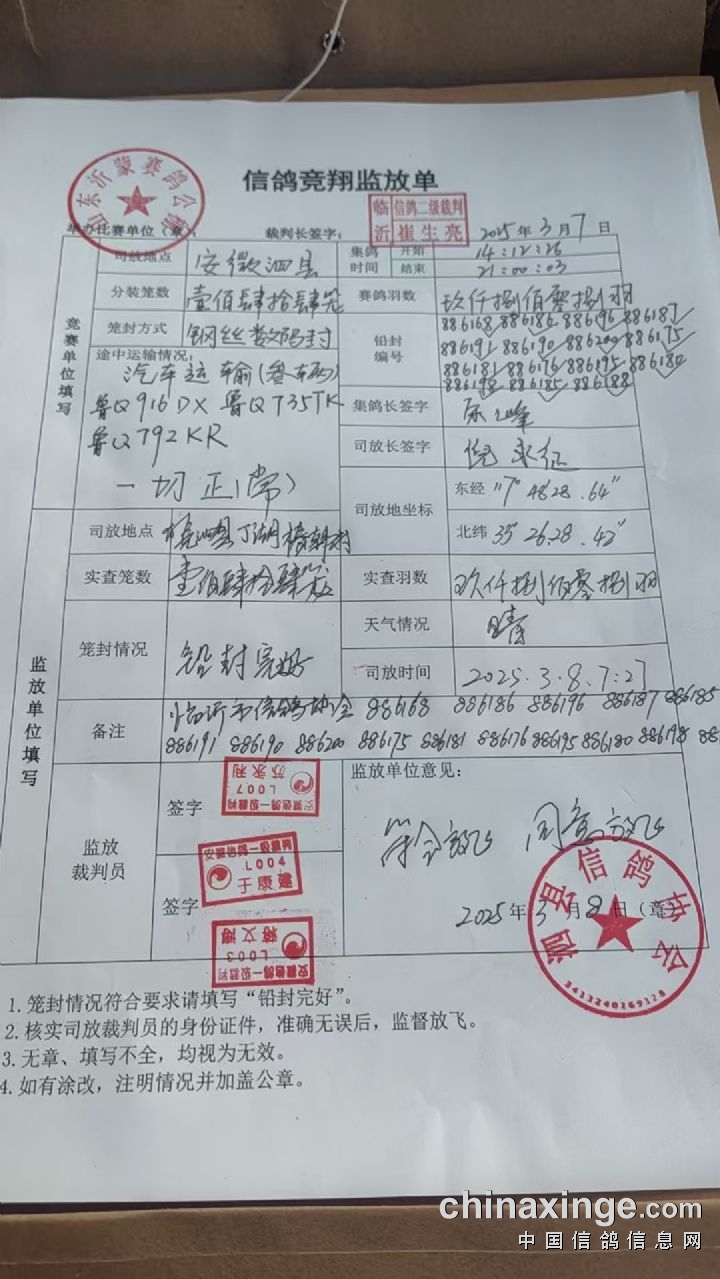 信鸽竞翔监放单
山东沂蒙赛鸽公棚
举办比赛单位(章):
裁判长签字:
临沂 信鸽二级裁判 崔生亮
2025年3月7日
竞赛单位填写
司放地点 安徽泗县
集鸽时间 开始 14:12:26
结束 21:00:03
分装笼数 壹佰肆拾肆笼
赛鸽羽数 玖仟捌佰零捌羽
笼封方式 钢丝数码封
铅封编号 886168 886186 886196 886187
886191 886190 886200 886175
886181 886176 886195 886180
886198 886185 886188
途中运输情况:
汽车运输(叁辆)
鲁Q916DX 鲁Q735TK
鲁Q792KR
一切正(常)
集鸽长签字
司放长签字
司放地坐标 东经 117° 48 28 .64"
北纬 33° 26.28 .42"
监放单位填写
司放地点
实查笼数 壹佰肆拾肆笼
实查羽数 玖仟捌佰零捌羽
笼封情况 铅封完好
天气情况 晴
司放时间 2025.3.8.7:27
备注 临沂市信鸽协会 886168 886186 886196 886187 886185
886191 886190 886200 886175 886181 886176 886195 886180 886198 88
监放裁判员
签字
安徽信鸽一级裁判 L007 苏永利
安徽信鸽一级裁判 L004 王康建
签字
安徽信鸽一级裁判 L003 蒋文博
监放单位意见:
符合放飞 同意放飞
2025年3月8日(章)
泗县信鸽协会
3413240169328
1.笼封情况符合要求请填写“铅封完好”。
2.核实司放裁判员的身份证件,准确无误后,监督放飞。
3.无章、填写不全,均视为无效。
4.如有涂改,注明情况并加盖公章。
chinaxinge.com
中国信鸽信息网